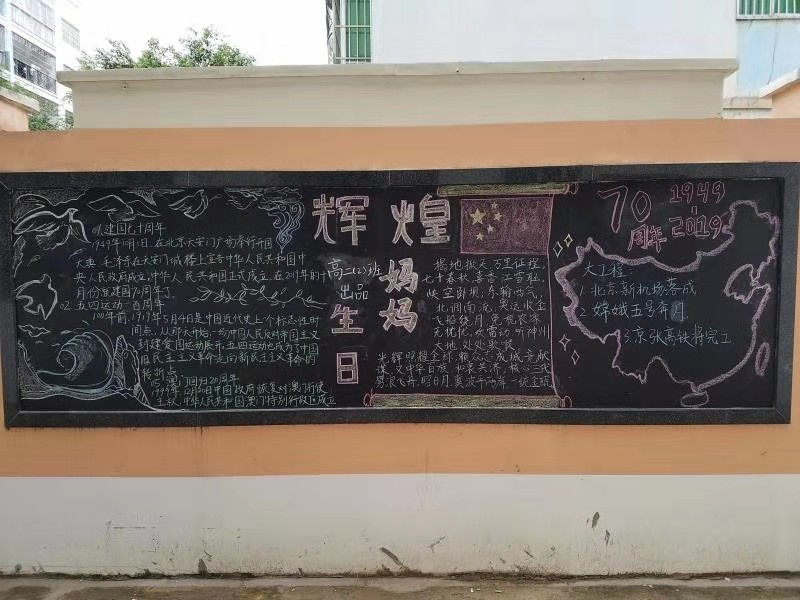 01.建国七十周年
1949年10月1日,在北京天安门广场举行开国
大典,毛泽东在天安门城楼上宣告中华人民共和国中
央人民政府成立,中华人民共和国正式成立.在2019年的十
月份京建国70周年了.
02.五四运动一百周年
100年前,1919年5月4日是中国近代史上个标志性时
间点,从那天开始,一场中国人民反对帝国主义
封建爱国运动展开,五四运动也成为了中国
旧民主主义革命走向新民主主义革命的
转折点
03.澳门回归20周年
1999年12月20日中国政府恢复对澳门行使
主权,中华人民共和国澳门特别行政区成立
辉煌
高二(2)班
出品
妈妈
生日
揭地掀天万里征程,
七十春秋喜奋
北调南流
飞船绕月,免税农家
大地处处歌
光辉照耀全球
70周年
1949-2019
大工程:
1.北京新机场落成
2.嫦娥五号奔月
3.京张高铁将完工